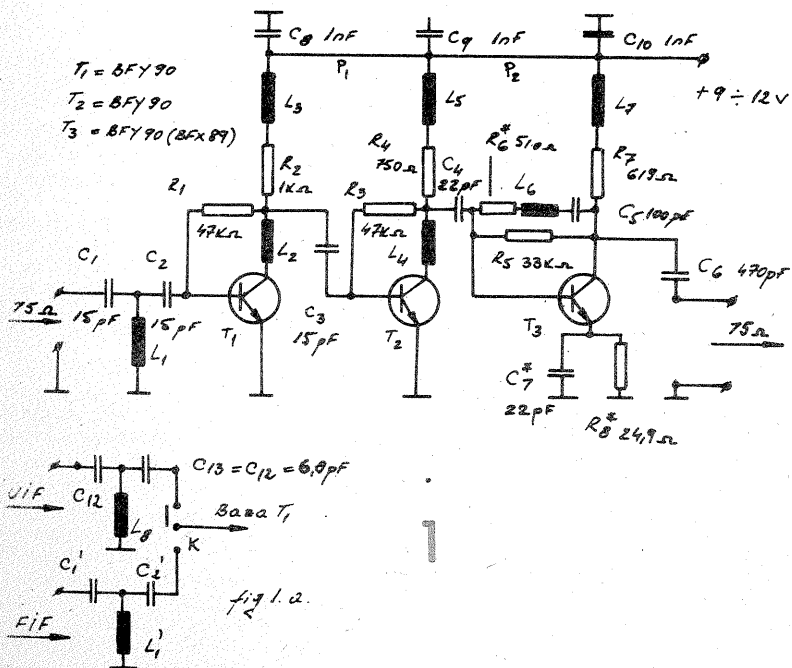 C8 1nF
C9 1nF
C10 1nF
P1
P2
+9 ÷ 12 V
T1 = BFY 90
T2 = BFY 90
T3 = BFY 90 (BFX 89)
L3
L5
L7
R2
1KΩ
R4
750Ω
C4
22pF
R6* 510Ω
L6
R7
619Ω
R1
47KΩ
R3
47KΩ
C5 100pF
R5 33KΩ
L2
L4
C6 470pF
C1
C2
75Ω
15pF
15pF
L1
T1
C3
15pF
T2
T3
75Ω
C7*
22pF
R8* 24,9Ω
C13 = C12 = 6,8pF
UIF
C12
L8
Baza T1
K
C1'
C2'
FIF
L1'
fig 1.a.
1